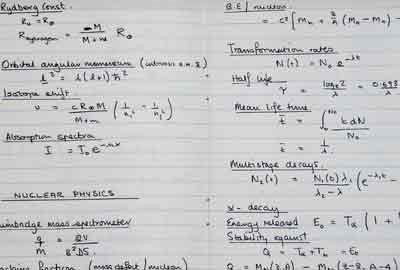 Rydberg Const.
R∞ = R∞
R hydrogen = M / M + m R∞
Orbital angular momentum
l² = l(l+1) ħ²
Isotope shift.
ν = cR∞M / M+m (1/n₁² - 1/n₂²)
Absorption spectra
I = I₀ e^-nαx
NUCLEAR PHYSICS
mass spectrometer
q/M = 2V / B²DS
fraction (mass defect / nucleon)
B.E / nucleon
= c² [Mn + Z/A (MH - Mn) -
Transformation rates
N(t) = N₀ e^-λt
Half life
τ = loge2 / λ = 0.693 / λ
Mean life time
t̄ = ∫ t dN / N₀
t̄ = 1/λ
Multistage decays.
N₂(t) = N₁(0) λ₁ / λ₂ - λ (e^-λ₁t -
α - decay
Energy released E₀ = Tα (1 +
Stability against
Q = Tα + Tb = E₀
Q = M(Z,A) - M(Z-2, A-4)